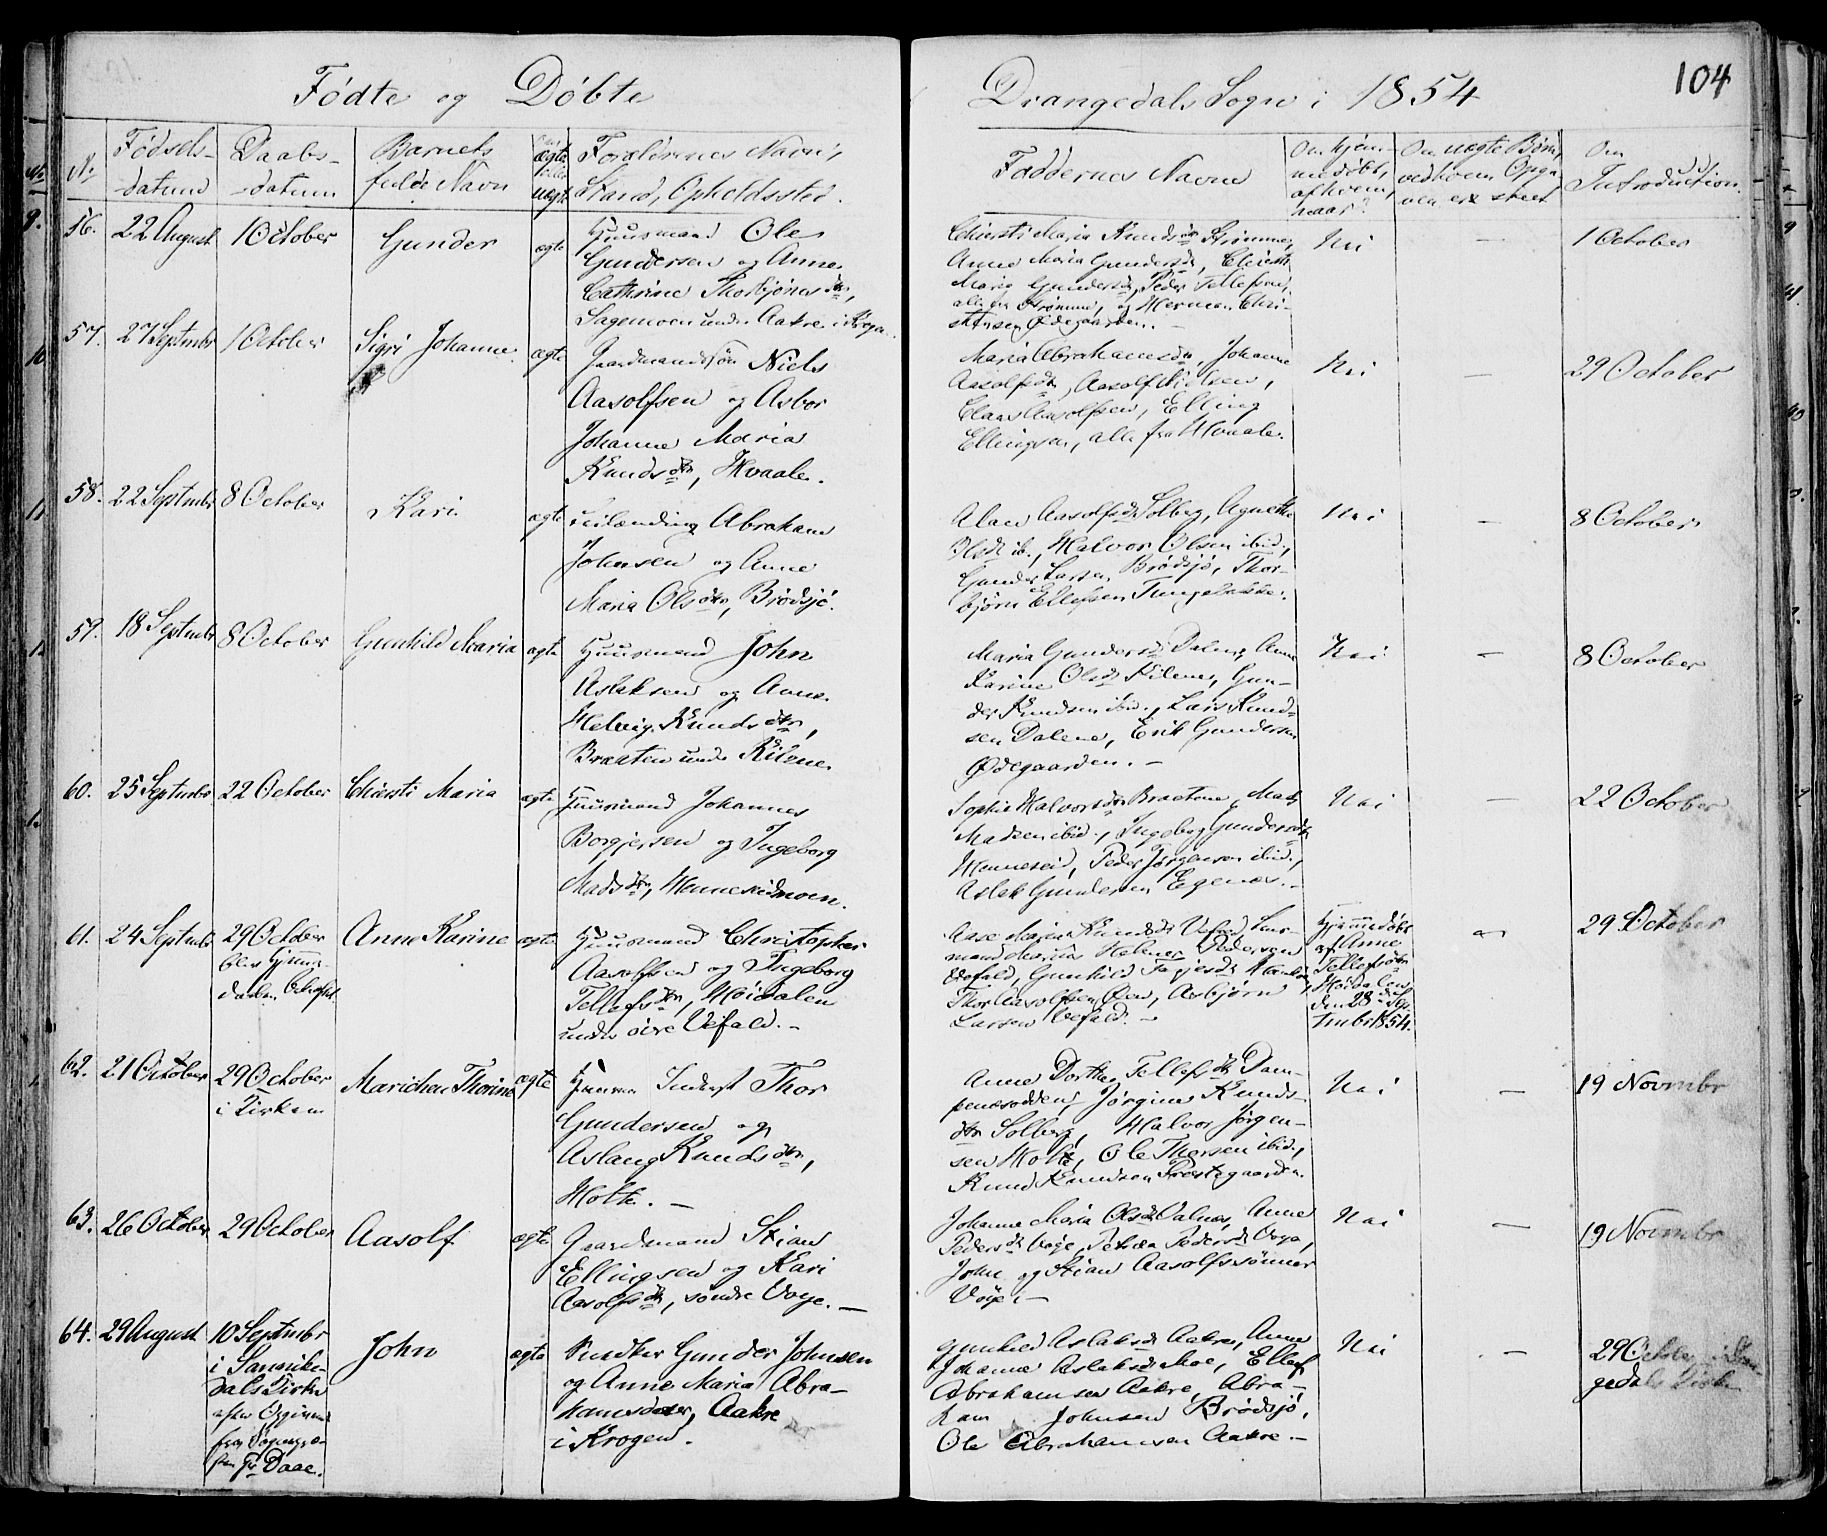 Fødte og Døbte
Drangedals Sogn i 1854
104
№
Fødsels-
datum
Daabs-
datum
Barnets
fulde Navn
ægte
eller
uægte
Forældrenes Navn,
Stand, Opholdssted.
Faddernes Navne
Om hjem-
medøbt,
af hvem,
naar?
Om uægte Børn,
ved hvem Opga-
ven er skeet
Om
Introduction.
56.
22 August
1 October
Gunder
ægte
Huusmand Ole
Gundersen og Anne
Cathrine Thorbjørnsdtr,
Sagemoen under Aakre i Krogen.
Chirsti Maria Knudsdtr Strømme,
Anne Maria Gundersdtr, Chirsti
Maria Gundersdtr, Peder Tellefsen,
alle fra Strømme, og Herman Chri-
stensen Ødegaarden. -
Nei
-
1 October
57.
27 Septmbr
1 October
Sigri Johanne
ægte
Gaardmandssøn Niels
Aasolfsen og Asbor
Johanne Maria
Knudsdtr, Hvaale.
Maria Abrahamsdtr, Johanne
Aasolfsdtr, Aasolf Nielsen,
Claus Aasolfsen, Elling
Ellingsen, alle fra Hvaale.
Nei
-
29 October
58.
22 Septmbr
8 October
Kari
ægte
Abraham
Johnsen og Anne
Maria Olsdtr, Brødsjø.
Aasolfsdtr Solberg, Agnethe
Olsdtr ib., Halvor Olsen ibid.,
Gunder Larsen Brødsjø, Thor-
bjørn Ellefsen
Nei
-
8 October
59.
18 Septmbr
8 October
Gunhild Maria
ægte
Huusmand John
Aslaksen og Anne
Helvig Knudsdtr,
Braaten under Kilene
Maria Gundersdtr Dalene, Anne
Karine Olsdtr Kilene, Gun-
der Knudsen ibid., Lars Knud-
sen Dalene, Erik Gundersen
Ødegaarden. -
Nei
-
8 October
60.
25 Septmbr
22 October
Chirsti Maria
ægte
Huusmand Johannes
Borgjersen og Ingeborg
Madsdtr, Henneseidmoen.
Sophie Halvorsdtr Braatene, Mads
Madsen ibid., Ingeborg Gundersdtr
Henneseid, Peder Jørgensen ibid.,
Aslak Gundersen Egenæs. -
Nei
-
22 October
61.
24 Septmbr
29 October
blev Hjemme-
daaben bekræftet
Anne Karine
ægte
Huusmand Christopher
Aasolfsen og Ingeborg
Tellefsdtr, Høidalen
under øvre Vefald. -
Aase Maria Knudsdtr Vefald,
Helene Pedersen
Vefald, Gunhild
Thor Aasolfsen Øen, Asbjørn
Larsen Vefald. -
Hjemmedøbt
af Anne
Tellefsdtr
Høidalen,
den 28de Sep-
tmbr 1854.
-
29 October
62.
21 October
29 October
i Kirken
Marichen Thorine
ægte
Thor
Gundersen og
Aslaug Knudsdtr,
Holte. -
Anne Dorthea Tellefsdtr Dam-
penæsodden, Jørgine Knuds-
dtr Solberg, Halvor Jørgen-
sen Holte, Ole Thorsen ibid.,
Knud Knudsen Prestegaarden.
Nei
-
19 Novmbr
63.
26 October
29 October
Aasolf
ægte
Gaardmand Stian
Ellingsen og Kari
Aasolfsdtr, søndre Voje. -
Johanne Maria Olsdtr Dalnes, Anne
Pedersdtr Voje, Petrea Pedersdtr Voje,
John og Stian Aasolfssønner
Voje. -
Nei
-
19 Novmbr
64.
29 August
10 Septmbr
i Sannike-
dals Kirke
efter Opgivende
fra Sognepræ-
sten Hr Daae.
John
ægte
Snedker Gunder Johnsen
og Anne Maria Abra-
hamsdatter, Aakre
i Krogen.
Gunhild Aslaksdtr Aakre, Anne
Johanne Aslaksdtr Moe, Ellef
Abrahamsen Aakre, Abra-
ham Johnsen Brødsjø,
Ole Abrahamsen Aakre. -
Nei
-
29 October i Dran-
gedals Kirke